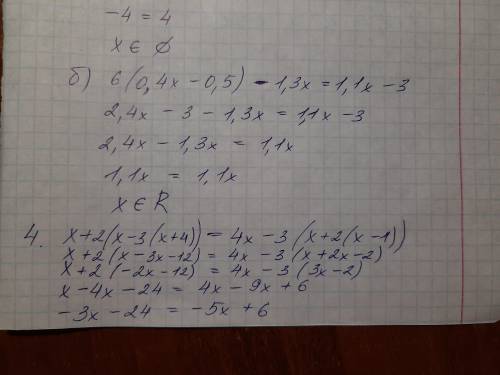 -4 = 4
x ∈ ∅
б) 6(0,4x - 0,5) - 1,3x = 1,1x - 3
2,4x - 3 - 1,3x = 1,1x - 3
2,4x - 1,3x = 1,1x
1,1x = 1,1x
x ∈ R
4. x + 2(x - 3(x + 4)) = 4x - 3(x + 2(x - 1))
x + 2(x - 3x - 12) = 4x - 3(x + 2x - 2)
x + 2(-2x - 12) = 4x - 3(3x - 2)
x - 4x - 24 = 4x - 9x + 6
-3x - 24 = -5x + 6